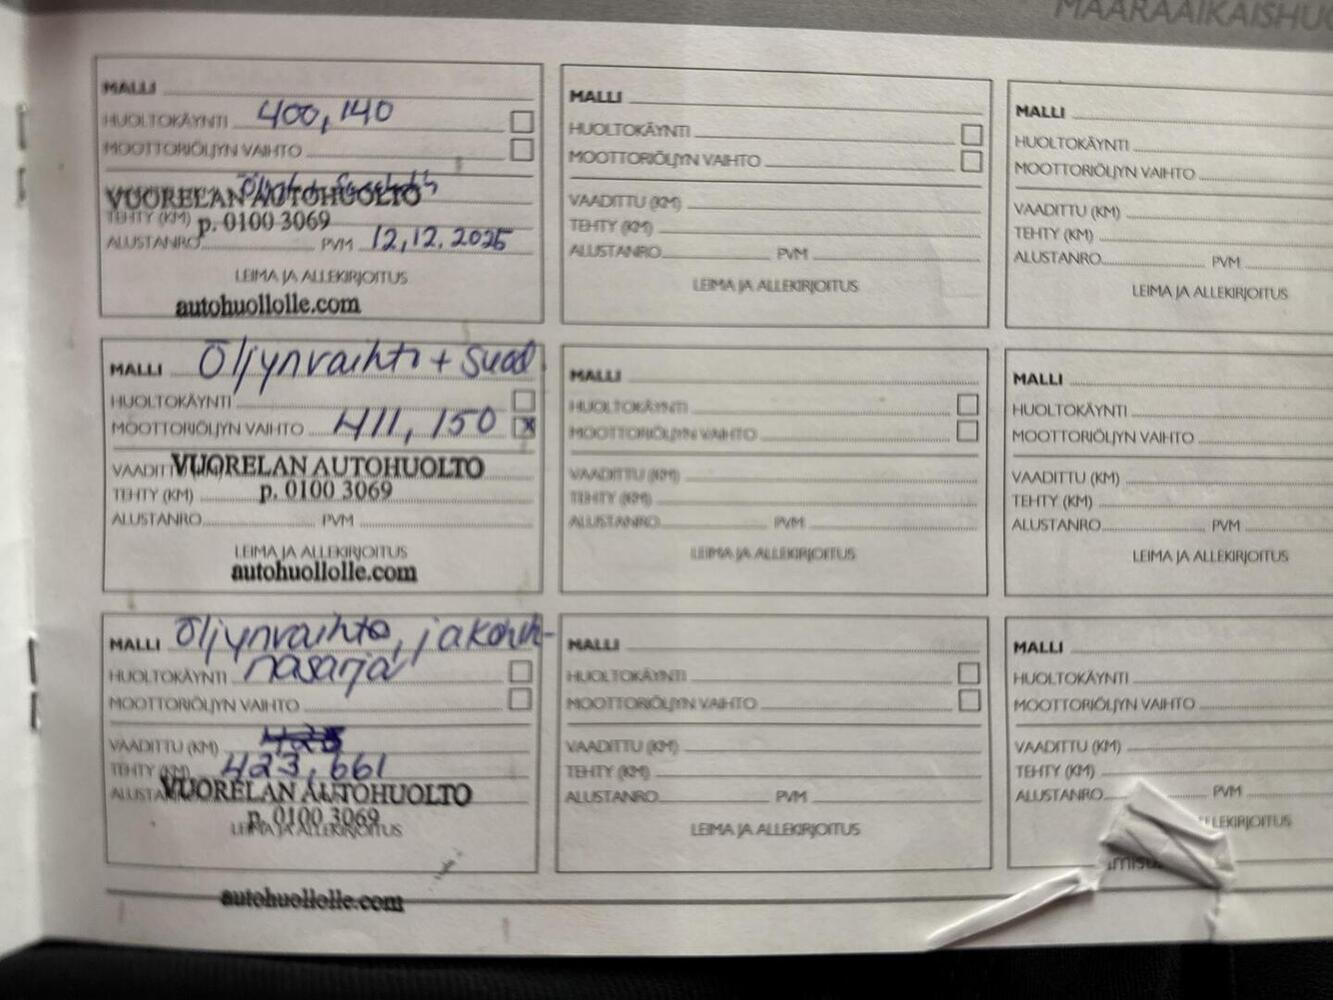 MÄÄRÄAIKAISHUO
MALLI
HUOLTOKÄYNTI 400,140
MOOTTORIÖLJYN VAIHTO
VUORELAN AUTOHUOLTO
TEHTY (KM) p. 0100 3069
ALUSTANRO PVM 12,12.2025
LEIMA JA ALLEKIRJOITUS
autohuollolle.com
MALLI Öljynvaihto + suod.
HUOLTOKÄYNTI
MOOTTORIÖLJYN VAIHTO 411,150 x
VAADITTU VUORELAN AUTOHUOLTO
TEHTY (KM) p. 0100 3069
ALUSTANRO PVM
LEIMA JA ALLEKIRJOITUS
autohuollolle.com
MALLI Öljynvaihto, jakohih-
HUOLTOKÄYNTI nasarja
MOOTTORIÖLJYN VAIHTO
VAADITTU (KM)
TEHTY (KM) 423,661
ALUSTA VUORELAN AUTOHUOLTO
p. 0100 3069
LEIMA JA ALLEKIRJOITUS
autohuollolle.com
MALLI
HUOLTOKÄYNTI
MOOTTORIÖLJYN VAIHTO
VAADITTU (KM)
TEHTY (KM)
ALUSTANRO PVM
LEIMA JA ALLEKIRJOITUS
MALLI
HUOLTOKÄYNTI
MOOTTORIÖLJYN VAIHTO
VAADITTU (KM)
TEHTY (KM)
ALUSTANRO PVM
LEIMA JA ALLEKIRJOITUS
MALLI
HUOLTOKÄYNTI
MOOTTORIÖLJYN VAIHTO
VAADITTU (KM)
TEHTY (KM)
ALUSTANRO PVM
LEIMA JA ALLEKIRJOITUS
MALLI
HUOLTOKÄYNTI
MOOTTORIÖLJYN VAIHTO
VAADITTU (KM)
TEHTY (KM)
ALUSTANRO PVM
LEIMA JA ALLEKIRJOITUS
MALLI
HUOLTOKÄYNTI
MOOTTORIÖLJYN VAIHTO
VAADITTU (KM)
TEHTY (KM)
ALUSTANRO PVM
LEIMA JA ALLEKIRJOITUS
MALLI
HUOLTOKÄYNTI
MOOTTORIÖLJYN VAIHTO
VAADITTU (KM)
TEHTY (KM)
ALUSTANRO PVM
LLEKIRJOITUS